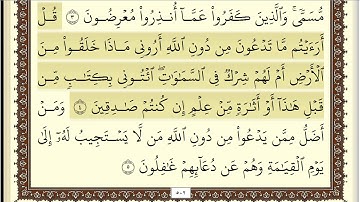 مُّسَمًّى ۚ وَالَّذِينَ كَفَرُوا عَمَّا أُنذِرُوا مُعْرِضُونَ ٣ قُلْ
أَرَأَيْتُم مَّا تَدْعُونَ مِن دُونِ اللَّهِ أَرُونِي مَاذَا خَلَقُوا مِنَ
الْأَرْضِ أَمْ لَهُمْ شِرْكٌ فِي السَّمَاوَاتِ ۖ ائْتُونِي بِكِتَابٍ مِّن
قَبْلِ هَٰذَا أَوْ أَثَارَةٍ مِّنْ عِلْمٍ إِن كُنتُمْ صَادِقِينَ ٤ وَمَنْ
أَضَلُّ مِمَّن يَدْعُو مِن دُونِ اللَّهِ مَن لَّا يَسْتَجِيبُ لَهُ إِلَىٰ
يَوْمِ الْقِيَامَةِ وَهُمْ عَن دُعَائِهِمْ غَافِلُونَ ٥